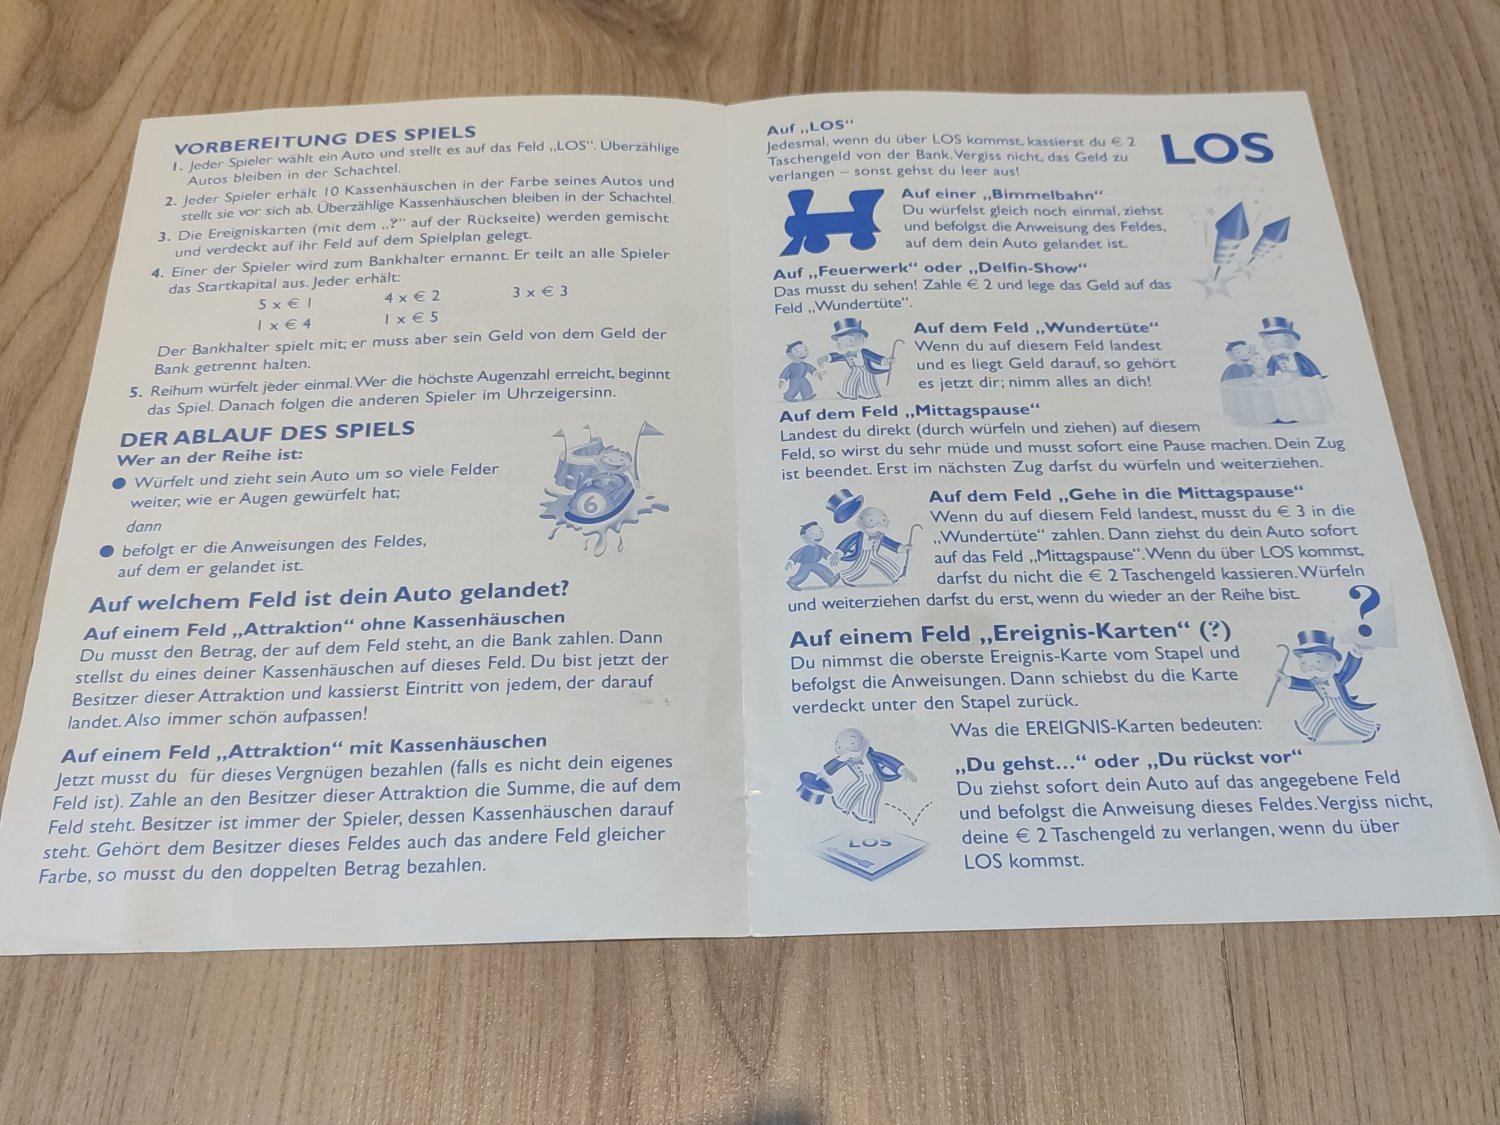 VORBEREITUNG DES SPIELS
1. Jeder Spieler wählt ein Auto und stellt es auf das Feld „LOS“. Überzählige
Autos bleiben in der Schachtel.
2. Jeder Spieler erhält 10 Kassenhäuschen in der Farbe seines Autos und
stellt sie vor sich ab. Überzählige Kassenhäuschen bleiben in der Schachtel.
3. Die Ereigniskarten (mit dem „?“ auf der Rückseite) werden gemischt
und verdeckt auf ihr Feld auf dem Spielplan gelegt.
4. Einer der Spieler wird zum Bankhalter ernannt. Er teilt an alle Spieler
das Startkapital aus. Jeder erhält:
5 x € 1 4 x € 2 3 x € 3
1 x € 4 1 x € 5
Der Bankhalter spielt mit; er muss aber sein Geld von dem Geld der
Bank getrennt halten.
5. Reihum würfelt jeder einmal. Wer die höchste Augenzahl erreicht, beginnt
das Spiel. Danach folgen die anderen Spieler im Uhrzeigersinn.
DER ABLAUF DES SPIELS
Wer an der Reihe ist:
● Würfelt und zieht sein Auto um so viele Felder
weiter, wie er Augen gewürfelt hat;
dann
● befolgt er die Anweisungen des Feldes,
auf dem er gelandet ist.
6
Auf welchem Feld ist dein Auto gelandet?
Auf einem Feld „Attraktion“ ohne Kassenhäuschen
Du musst den Betrag, der auf dem Feld steht, an die Bank zahlen. Dann
stellst du eines deiner Kassenhäuschen auf dieses Feld. Du bist jetzt der
Besitzer dieser Attraktion und kassierst Eintritt von jedem, der darauf
landet. Also immer schön aufpassen!
Auf einem Feld „Attraktion“ mit Kassenhäuschen
Jetzt musst du für dieses Vergnügen bezahlen (falls es nicht dein eigenes
Feld ist). Zahle an den Besitzer dieser Attraktion die Summe, die auf dem
Feld steht. Besitzer ist immer der Spieler, dessen Kassenhäuschen darauf
steht. Gehört dem Besitzer dieses Feldes auch das andere Feld gleicher
Farbe, so musst du den doppelten Betrag bezahlen.
Auf „LOS“
Jedesmal, wenn du über LOS kommst, kassierst du € 2
Taschengeld von der Bank. Vergiss nicht, das Geld zu
verlangen – sonst gehst du leer aus!
LOS
Auf einer „Bimmelbahn“
Du würfelst gleich noch einmal, ziehst
und befolgst die Anweisung des Feldes,
auf dem dein Auto gelandet ist.
Auf „Feuerwerk“ oder „Delfin-Show“
Das musst du sehen! Zahle € 2 und lege das Geld auf das
Feld „Wundertüte“.
Auf dem Feld „Wundertüte“
Wenn du auf diesem Feld landest
und es liegt Geld darauf, so gehört
es jetzt dir; nimm alles an dich!
Auf dem Feld „Mittagspause“
Landest du direkt (durch würfeln und ziehen) auf diesem
Feld, so wirst du sehr müde und musst sofort eine Pause machen. Dein Zug
ist beendet. Erst im nächsten Zug darfst du würfeln und weiterziehen.
Auf dem Feld „Gehe in die Mittagspause“
Wenn du auf diesem Feld landest, musst du € 3 in die
„Wundertüte“ zahlen. Dann ziehst du dein Auto sofort
auf das Feld „Mittagspause“. Wenn du über LOS kommst,
darfst du nicht die € 2 Taschengeld kassieren. Würfeln
und weiterziehen darfst du erst, wenn du wieder an der Reihe bist.
?
Auf einem Feld „Ereignis-Karten“ (?)
Du nimmst die oberste Ereignis-Karte vom Stapel und
befolgst die Anweisungen. Dann schiebst du die Karte
verdeckt unter den Stapel zurück.
Was die EREIGNIS-Karten bedeuten:
„Du gehst...“ oder „Du rückst vor“
Du ziehst sofort dein Auto auf das angegebene Feld
und befolgst die Anweisung dieses Feldes. Vergiss nicht,
deine € 2 Taschengeld zu verlangen, wenn du über
LOS kommst.
LOS